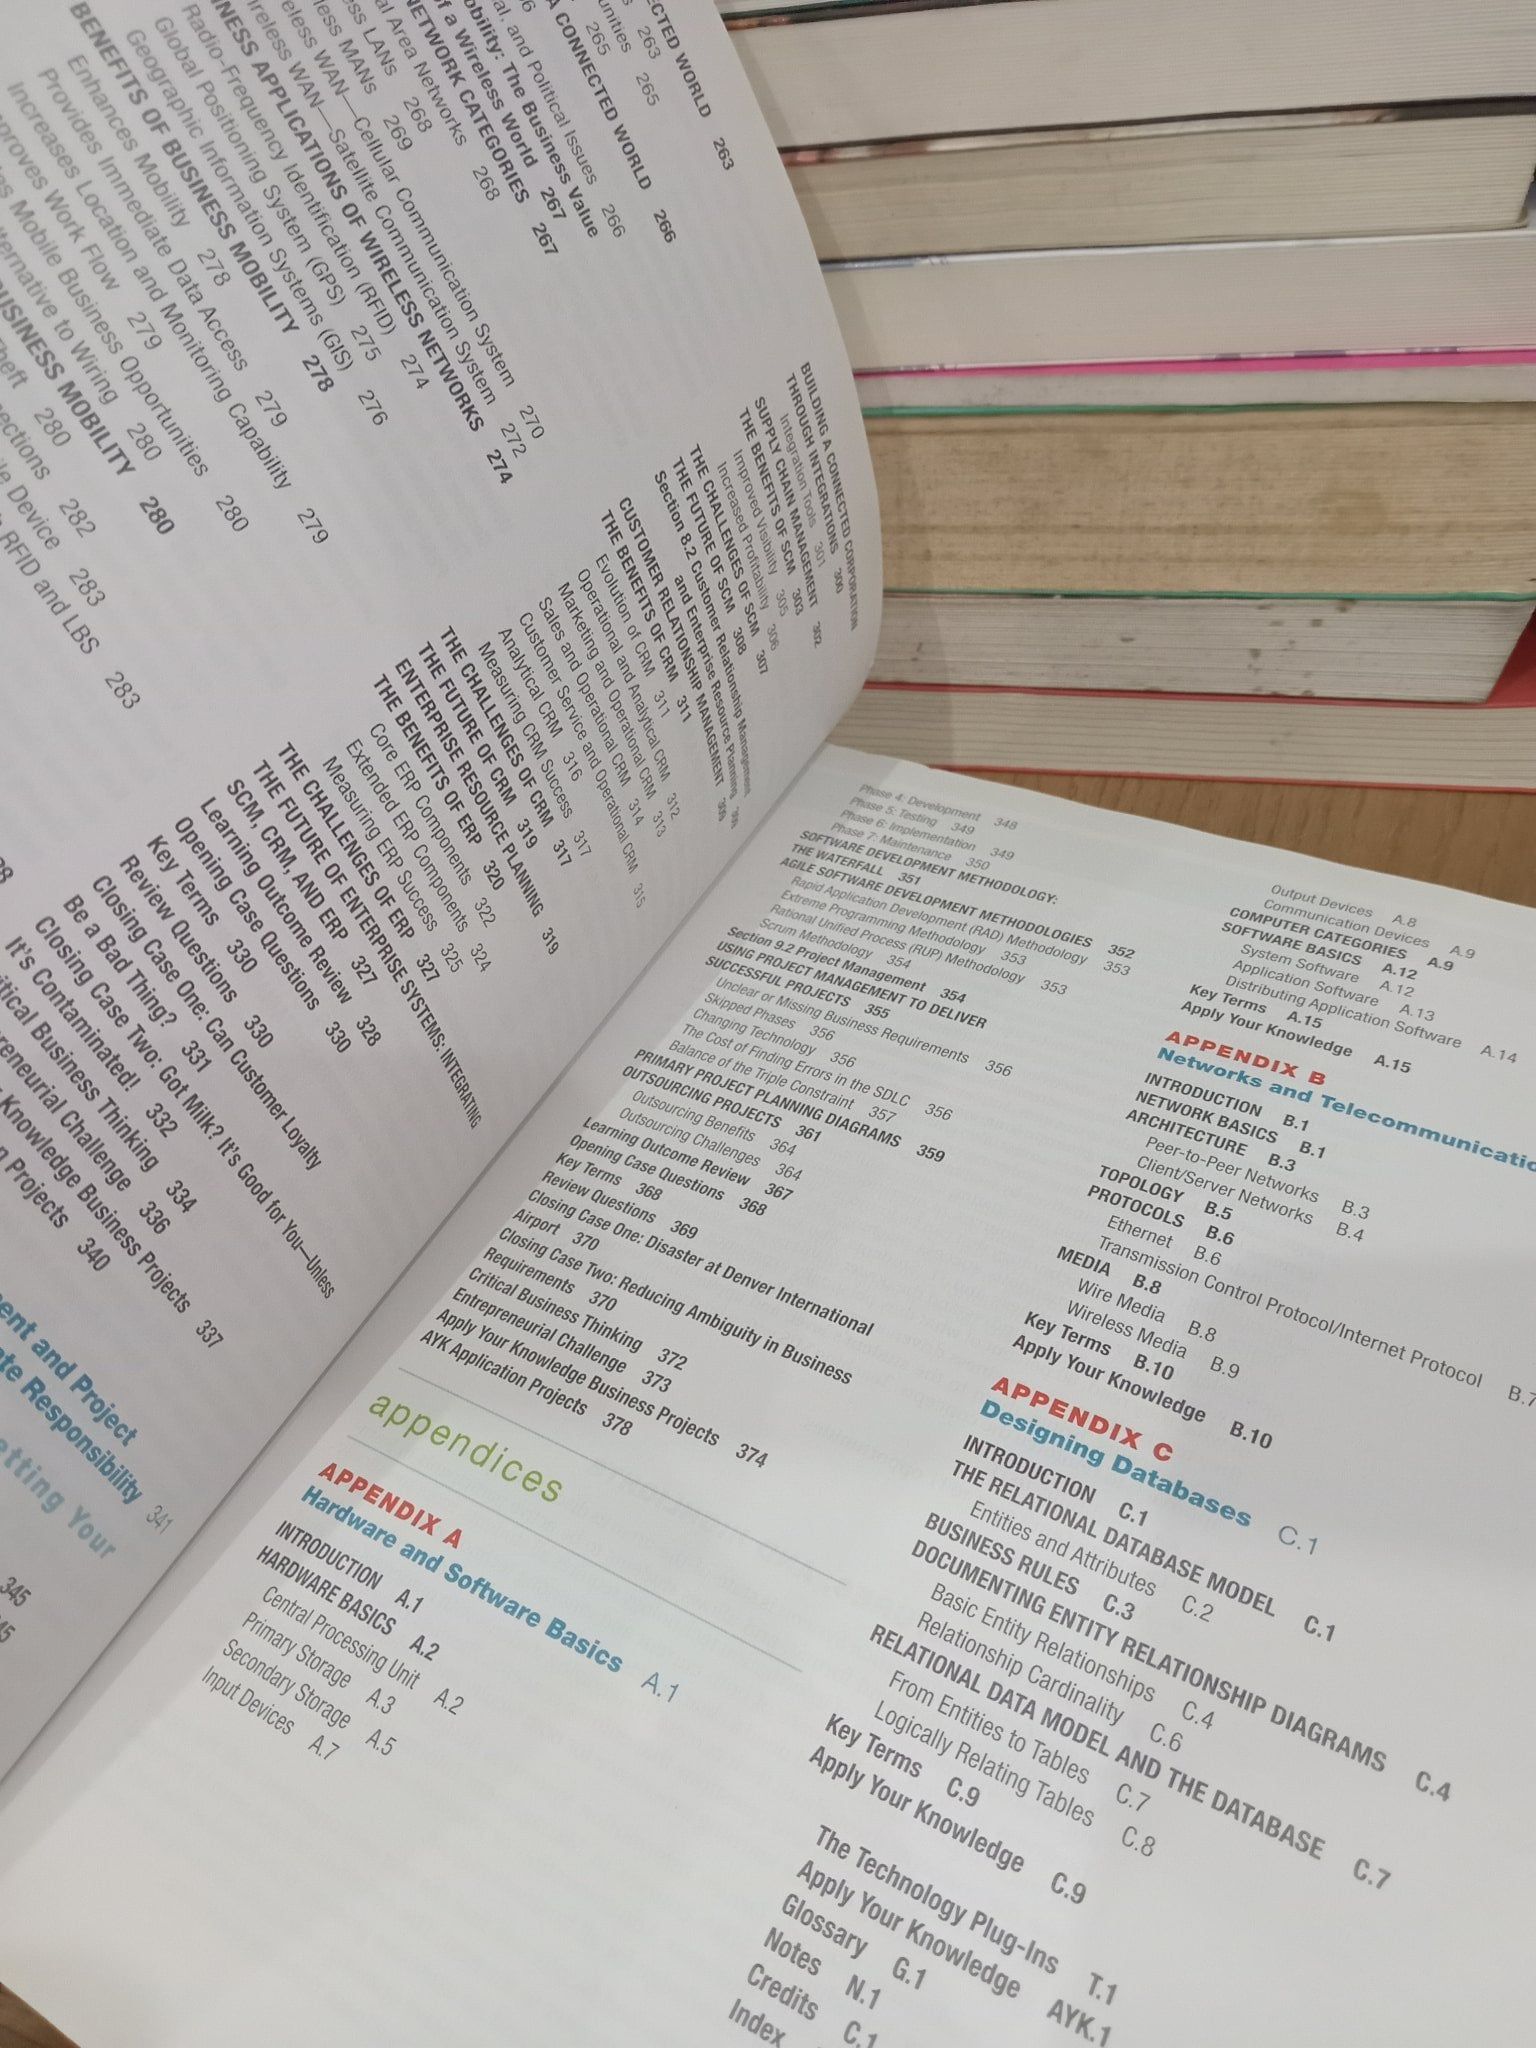 ECTED WORLD 263
263
unities 265
265
A CONNECTED WORLD 266
al, and Political Issues 266
obility: The Business Value
of a Wireless World 267
NETWORK CATEGORIES 267
al Area Networks 268
ess LANs 268
less MANs 269
ireless WAN—Cellular Communication System 270
ireless WAN—Satellite Communication System 272
INESS APPLICATIONS OF WIRELESS NETWORKS 274
Radio-Frequency Identification (RFID) 274
Global Positioning System (GPS) 275
Geographic Information Systems (GIS) 276
BENEFITS OF BUSINESS MOBILITY 278
Enhances Mobility 278
Provides Immediate Data Access 279
Increases Location and Monitoring Capability 279
proves Work Flow 279
Mobile Business Opportunities 280
lternative to Wiring 280
BUSINESS MOBILITY 280
heft 280
ections 282
Device 283
RFID and LBS 283
BUILDING A CONNECTED CORPORATION
THROUGH INTEGRATIONS 300
Integration Tools 301
SUPPLY CHAIN MANAGEMENT 302
THE BENEFITS OF SCM 303
Improved Visibility 305
Increased Profitability 306
THE CHALLENGES OF SCM 307
THE FUTURE OF SCM 308
Section 8.2 Customer Relationship Management
and Enterprise Resource Planning 308
CUSTOMER RELATIONSHIP MANAGEMENT 309
THE BENEFITS OF CRM 311
Evolution of CRM 311
Operational and Analytical CRM 312
Marketing and Operational CRM 313
Sales and Operational CRM 314
Customer Service and Operational CRM 315
Analytical CRM 316
Measuring CRM Success 317
THE CHALLENGES OF CRM 317
THE FUTURE OF CRM 319
ENTERPRISE RESOURCE PLANNING 319
THE BENEFITS OF ERP 320
Core ERP Components 322
Extended ERP Components 324
Measuring ERP Success 325
THE CHALLENGES OF ERP 327
THE FUTURE OF ENTERPRISE SYSTEMS: INTEGRATING
SCM, CRM, AND ERP 327
Learning Outcome Review 328
Opening Case Questions 330
Key Terms 330
Review Questions 330
Closing Case One: Can Customer Loyalty
Be a Bad Thing? 331
Closing Case Two: Got Milk? It's Good for You—Unless
It's Contaminated! 332
itical Business Thinking 334
reneurial Challenge 336
Knowledge Business Projects 337
n Projects 340
ent and Project
ate Responsibility 341
etting Your
345
Phase 4: Development 348
Phase 5: Testing 349
Phase 6: Implementation 349
Phase 7: Maintenance 350
SOFTWARE DEVELOPMENT METHODOLOGY:
THE WATERFALL 351
AGILE SOFTWARE DEVELOPMENT METHODOLOGIES 352
Rapid Application Development (RAD) Methodology 353
Extreme Programming Methodology 353
Rational Unified Process (RUP) Methodology 353
Scrum Methodology 354
Section 9.2 Project Management 354
USING PROJECT MANAGEMENT TO DELIVER
SUCCESSFUL PROJECTS 355
Unclear or Missing Business Requirements 356
Skipped Phases 356
Changing Technology 356
The Cost of Finding Errors in the SDLC 356
Balance of the Triple Constraint 357
PRIMARY PROJECT PLANNING DIAGRAMS 359
OUTSOURCING PROJECTS 361
Outsourcing Benefits 364
Outsourcing Challenges 364
Learning Outcome Review 367
Opening Case Questions 368
Key Terms 368
Review Questions 369
Closing Case One: Disaster at Denver International
Airport 370
Closing Case Two: Reducing Ambiguity in Business
Requirements 370
Critical Business Thinking 372
Entrepreneurial Challenge 373
Apply Your Knowledge Business Projects 374
AYK Application Projects 378
appendices
APPENDIX A
Hardware and Software Basics A.1
INTRODUCTION A.1
HARDWARE BASICS A.2
Central Processing Unit A.2
Primary Storage A.3
Secondary Storage A.5
Input Devices A.7
Output Devices A.8
Communication Devices A.9
COMPUTER CATEGORIES A.9
SOFTWARE BASICS A.12
System Software A.12
Application Software A.13
Distributing Application Software A.14
Key Terms A.15
Apply Your Knowledge A.15
APPENDIX B
Networks and Telecommunicatio
INTRODUCTION B.1
NETWORK BASICS B.1
ARCHITECTURE B.3
Peer-to-Peer Networks B.3
Client/Server Networks B.4
TOPOLOGY B.5
PROTOCOLS B.6
Ethernet B.6
Transmission Control Protocol/Internet Protocol B.7
MEDIA B.8
Wire Media B.8
Wireless Media B.9
Key Terms B.10
Apply Your Knowledge B.10
APPENDIX C
Designing Databases C.1
INTRODUCTION C.1
THE RELATIONAL DATABASE MODEL C.1
Entities and Attributes C.2
BUSINESS RULES C.3
DOCUMENTING ENTITY RELATIONSHIP DIAGRAMS C.4
Basic Entity Relationships C.4
Relationship Cardinality C.6
RELATIONAL DATA MODEL AND THE DATABASE C.7
From Entities to Tables C.7
Logically Relating Tables C.8
Key Terms C.9
Apply Your Knowledge C.9
The Technology Plug-Ins T.1
Apply Your Knowledge AYK.1
Glossary G.1
Notes N.1
Credits C.1
Index